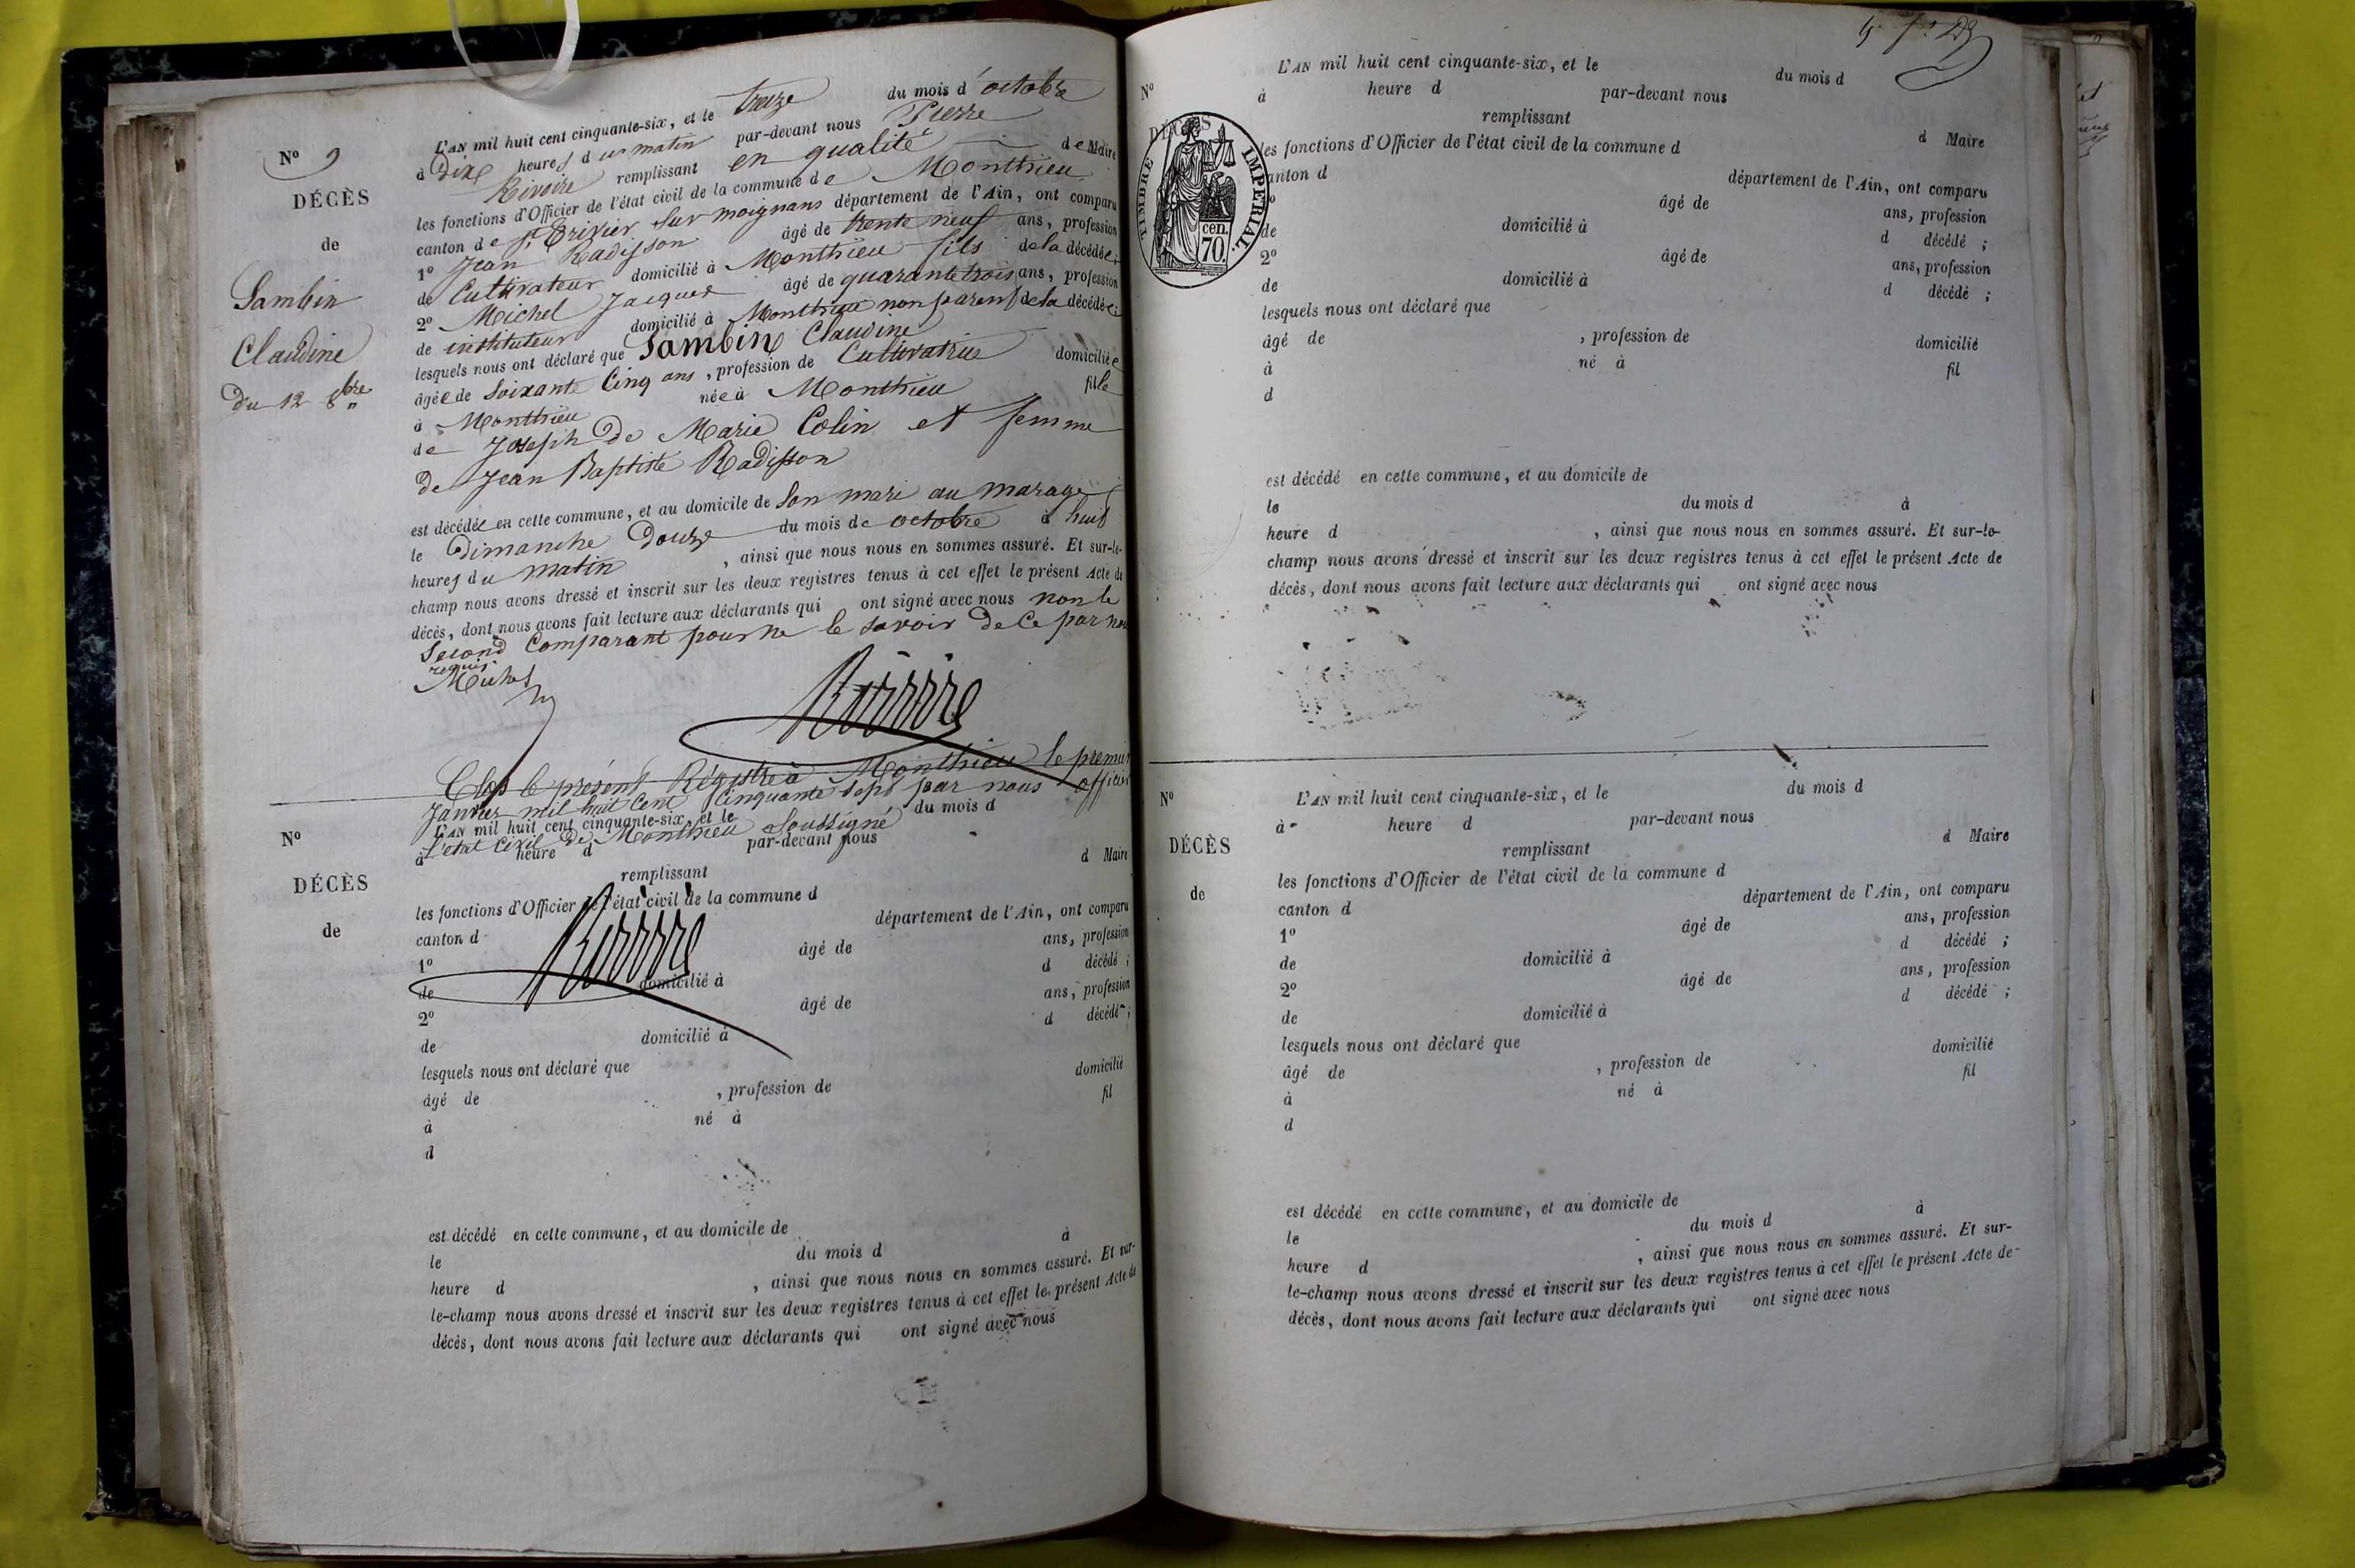 N° 9
DÉCÈS
de
Sambin
Claudine
Du 12 8bre
L'AN mil huit cent cinquante-six, et le treize du mois d'octobre
à Dix heures du matin par-devant nous Pierre
Rivoire remplissant en qualité de Maire
les fonctions d'Officier de l'état civil de la commune de Monthieu
canton de St Trivier sur moignans département de l'Ain, ont comparu
1° Jean Radisson âgé de trente neuf ans, profession
de Cultivateur domicilié à Monthieu fils de la décédée;
2° Michel Jacques âgé de quarante trois ans, profession
de instituteur domicilié à Monthieu non parent de la décédée;
lesquels nous ont déclaré que Sambin Claudine
âgée de Soixante Cinq ans, profession de Cultivatrice domiciliée
à Monthieu née à Monthieu fille
de Joseph De Marie Colin et femme
De Jean Baptiste Radisson
est décédée en cette commune, et au domicile de Son mari au marage
le Dimanche Douze du mois de octobre à huit
heures du matin, ainsi que nous nous en sommes assuré. Et sur-le-
champ nous avons dressé et inscrit sur les deux registres tenus à cet effet le présent Acte de
décès, dont nous avons fait lecture aux déclarants qui ont signé avec nous non le
Second Comparant pour ne le savoir De Ce par nous
requis.
Michel
Rivoire
Clos le présent Régistre à Monthieu le premier
Janvier mil huit Cent Cinquante Sept par nous officier
L'état Civil De Monthieu Soussigné
Rivoire
N°
DÉCÈS
de
L'AN mil huit cent cinquante-six, et le du mois d
à heure d par-devant nous
remplissant d Maire
les fonctions d'Officier de l'état civil de la commune d
canton d département de l'Ain, ont comparu
1° âgé de ans, profession
de domicilié à d décédé ;
2° âgé de ans, profession
de domicilié à d décédé ;
lesquels nous ont déclaré que
âgé de , profession de domicilié
à né à fil
d
est décédé en cette commune, et au domicile de
le du mois d à
heure d , ainsi que nous nous en sommes assuré. Et sur-
le-champ nous avons dressé et inscrit sur les deux registres tenus à cet effet le présent Acte de
décès, dont nous avons fait lecture aux déclarants qui ont signé avec nous
N°
DÉCÈS
TIMBRE IMPÉRIAL.
70 cen.
L'AN mil huit cent cinquante-six, et le du mois d
à heure d par-devant nous
remplissant d Maire
les fonctions d'Officier de l'état civil de la commune d
canton d département de l'Ain, ont comparu
âgé de ans, profession
de domicilié à d décédé ;
2° âgé de ans, profession
de domicilié à d décédé ;
lesquels nous ont déclaré que
âgé de , profession de domicilié
à né à fil
d
est décédé en cette commune, et au domicile de
le du mois d à
heure d , ainsi que nous nous en sommes assuré. Et sur-le-
champ nous avons dressé et inscrit sur les deux registres tenus à cet effet le présent Acte de
décès, dont nous avons fait lecture aux déclarants qui ont signé avec nous
N°
DÉCÈS
de
L'AN mil huit cent cinquante-six, et le du mois d
à heure d par-devant nous
remplissant d Maire
les fonctions d'Officier de l'état civil de la commune d
canton d département de l'Ain, ont comparu
1° âgé de ans, profession
de domicilié à d décédé ;
2° âgé de ans, profession
de domicilié à d décédé ;
lesquels nous ont déclaré que
âgé de , profession de domicilié
à né à fil
d
est décédé en cette commune, et au domicile de
le du mois d à
heure d , ainsi que nous nous en sommes assuré. Et sur-
le-champ nous avons dressé et inscrit sur les deux registres tenus à cet effet le présent Acte de
décès, dont nous avons fait lecture aux déclarants qui ont signé avec nous